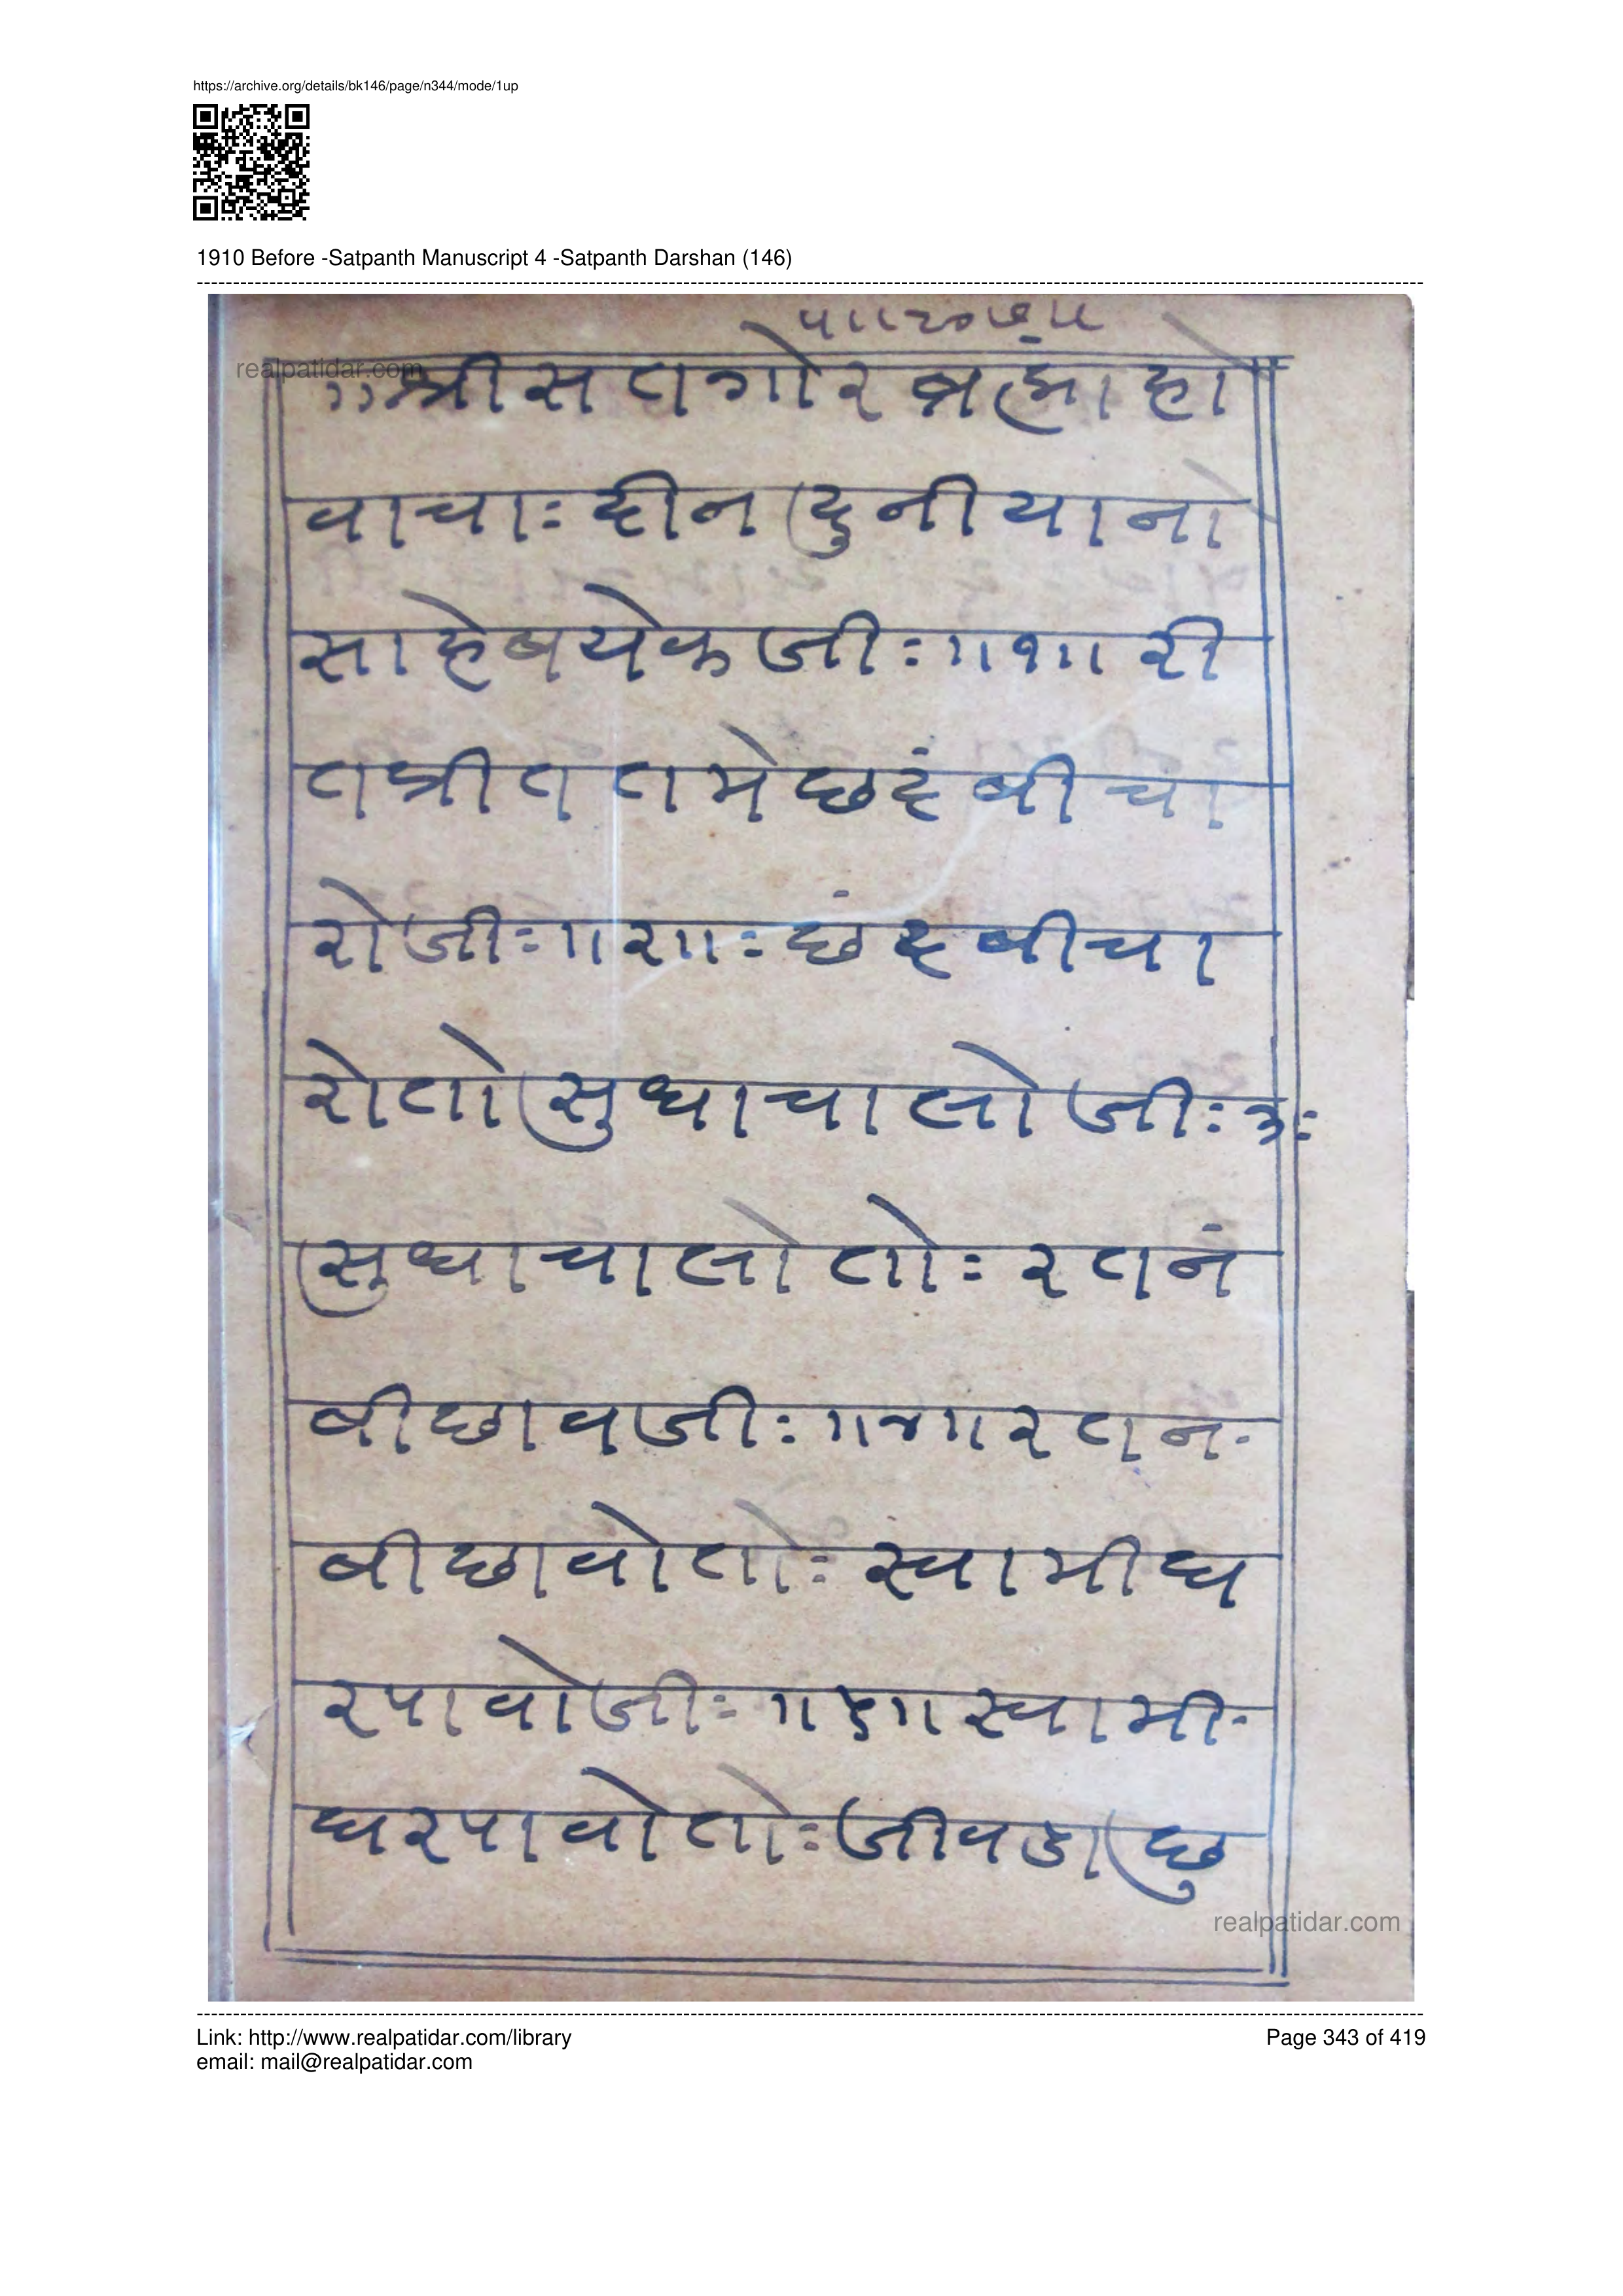 https://archive.org/details/bk146/page/n344/mode/1up
1910 Before -Satpanth Manuscript 4 -Satpanth Darshan (146)
realpatidar.com
॥श्रीसतगोरब्रह्मांहो
वाचाः दीनदुनीयानो
साहेबयेकजीः॥१॥री
तप्रीततमेछदंबीचा
रोजीः॥२॥ः छंदबीचा
रोतोसुधाचालोजीः३ः
सुधाचालोतोः रतनं
बीछावजीः॥४॥रतन
बीछावोतोः स्वामीघ
रपावोजीः॥५॥स्वामी
घरपावोतोः जीवडाछु
realpatidar.com
Link: http://www.realpatidar.com/library
Page 343 of 419
email: mail@realpatidar.com